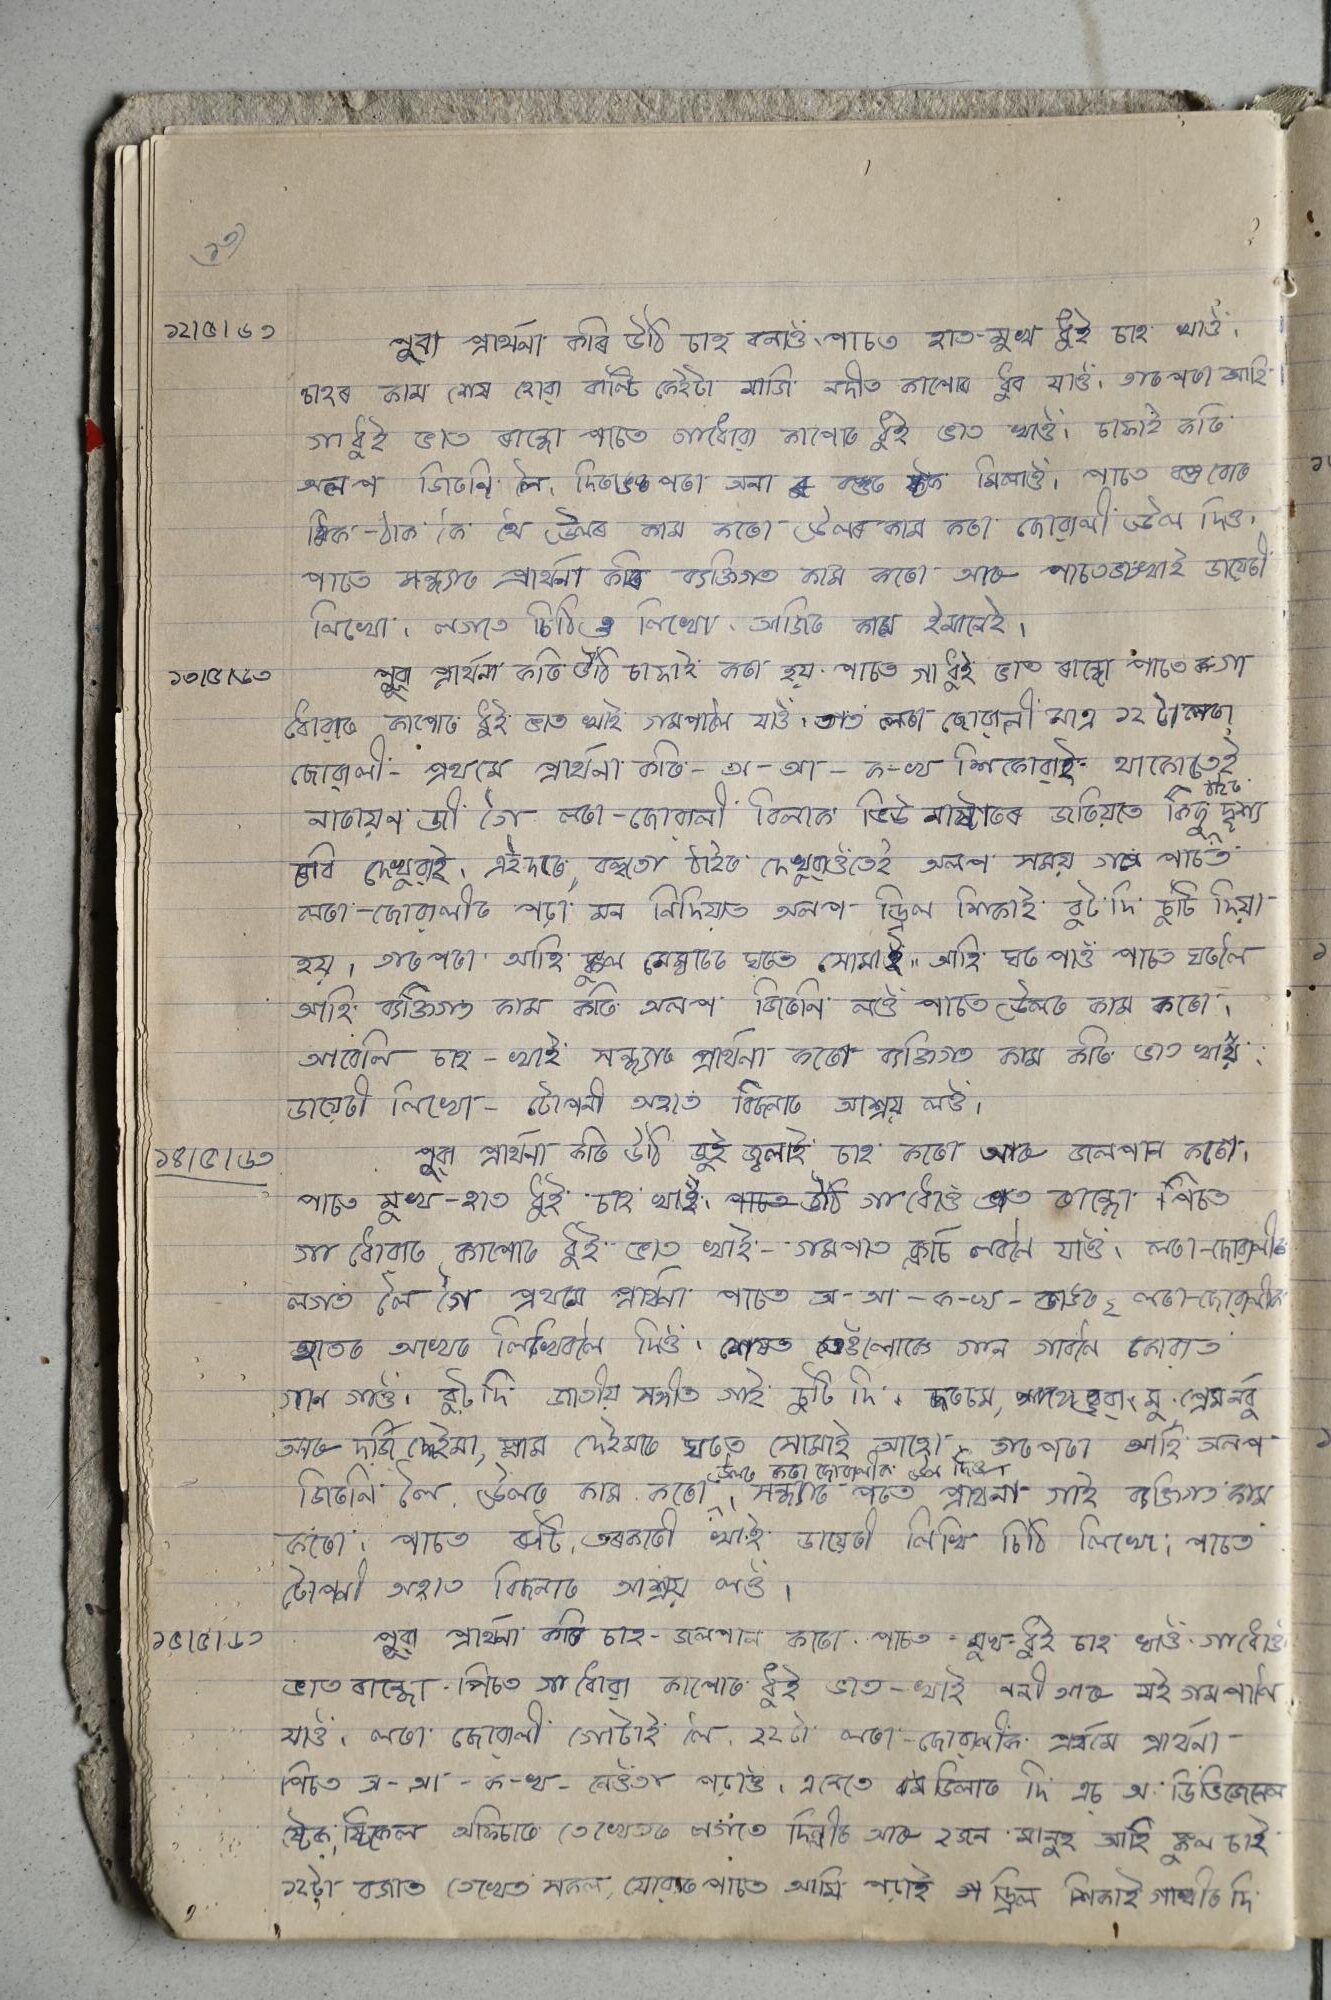 ১৩
১২/৫/৬৩ পুৱা প্ৰাৰ্থনা কৰি উঠি চাহ বনাওঁ, পাচত হাত-মুখ ধুই চাহ খাওঁ।
চাহৰ কাম শেষ হোৱা বাল্টি কেইটা মাজি নদীত কাপোৰ ধুব যাওঁ। তাৰপৰা আহি
গা ধুই ভাত ৰান্ধো পাচত গাধোৱা কাপোৰ ধুই ভাত খাওঁ। চাফাই কৰি
অলপ জিৰনি লৈ, মিলাওঁ। পাচে বস্তুবোৰ
ঠিক-ঠাক কৈ থৈ তেলৰ কাম কৰো তেলৰ কাম কৰা ছোৱালী তেল দিও।
পাচে সন্ধ্যাত প্ৰাৰ্থনা কৰি ব্যক্তিগত কাম কৰো আৰু পাচত ভাত খাই ডায়েৰী
লিখো। লগতে চিঠিও লিখো। আজিৰ কাম ইমানেই।
১৩/৫/৬৩ পুৱা প্ৰাৰ্থনা কৰি উঠি চাফাই কৰা হয়। পাচত গা ধুই ভাত ৰান্ধো পাচত গা
ধোৱাৰ কাপোৰ ধুই ভাত খাই গমপালৈ যাওঁ। তাত লৰা ছোৱালী মাত্ৰ ১২ টা লৰা
ছোৱালী- প্ৰথমে প্ৰাৰ্থনা কৰি- অ-আ-ক-খ শিকোৱাই থাকোতেই
নাৰায়ণ জী গৈ লৰা-ছোৱালী বিলাক ভিউ মাষ্টাৰৰ জৰিয়তে কিছু ঠাইৰ দৃশ্য
ছবি দেখুৱাই। এইদৰে, বহুতো ঠাইৰ দেখুৱাওঁতেই অলপ সময় গল পাচত
লৰা-ছোৱালীৰ পঢ়া মন নিদিয়াত অলপ ড্ৰিল শিকাই বুট দি ছুটি দিয়া
হয়। তাৰপৰা আহি স্কুল মেম্বাৰৰ ঘৰত সোমাই আহি ঘৰ পাওঁ পাচে ঘৰলৈ
আহি ব্যক্তিগত কাম কৰি অলপ জিৰনি লওঁ পাচত তেলৰ কাম কৰো।
আবেলি চাহ-খাই সন্ধ্যাত প্ৰাৰ্থনা কৰো ব্যক্তিগত কাম কৰি ভাত খাওঁ।
ডায়েৰী লিখো- টোপনী অহাত বিছনাত আশ্ৰয় লওঁ।
১৪/৫/৬৩ পুৱা প্ৰাৰ্থনা কৰি উঠি জুই জ্বলাই চাহ কৰো আৰু জলপান কৰো।
পাচে মুখ-হাত ধুই চাহ খাই। পাচত উঠি গা ধোওঁ ভাত ৰান্ধো পিচত
গা ধোৱাৰ কাপোৰ ধুই ভাত খাই- গমপাত ক্লাচ লবলৈ যাওঁ। লৰা-ছোৱালীক
লগত লৈ গৈ প্ৰথমে প্ৰাৰ্থনা পাচত অ-আ-ক-খ- লৰা-ছোৱালীক
হাতৰ আখৰ লিখিবলৈ দিওঁ। শেষত তেওঁলোকে গান গাবলৈ কোৱাত
গান গাওঁ। বুট দি জাতীয় সঙ্গীত গাই ছুটি দি।
আৰু ঘৰত সোমাই আহো তাৰপৰা আহি অলপ
জিৰনি লৈ, তেলৰ কাম কৰো। তেলৰ কৰা ছোৱালীক তেল দিওঁ। সন্ধ্যাত প্ৰাৰ্থনা গাই ব্যক্তিগত কাম
কৰো। পাচত ৰুটি, তৰকাৰী খাই ডায়েৰী লিখি চিঠি লিখো; পাচত
টোপনী অহাত বিছনাত আশ্ৰয় লওঁ।
১৫/৫/৬৩ পুৱা প্ৰাৰ্থনা কৰি চাহ-জলপান কৰো। পাচত মুখ-ধুই চাহ খাওঁ। গা ধোওঁ
ভাত ৰান্ধো। পিচত গা ধোৱা কাপোৰ ধুই ভাত-খাই আৰু মই গমপালৈ
যাওঁ। লৰা ছোৱালী গোটাই লৈ, ২২টা লৰা-ছোৱালীক প্ৰথমে প্ৰাৰ্থনা
পিচত অ-আ-ক-খ- নেওঁতা পঢ়াওঁ। এনেতে বমডিলাৰ দি এচ্ অ' ডিভিজনেল
অফিচাৰ তেখেতৰ লগতে দিল্লীৰ আৰু ২জন মানুহ আহি স্কুল চাই
১২টা বজাত তেখেত সকল যোৱাৰ পাচত আমি পঢ়াই ড্ৰিল শিকাই দি